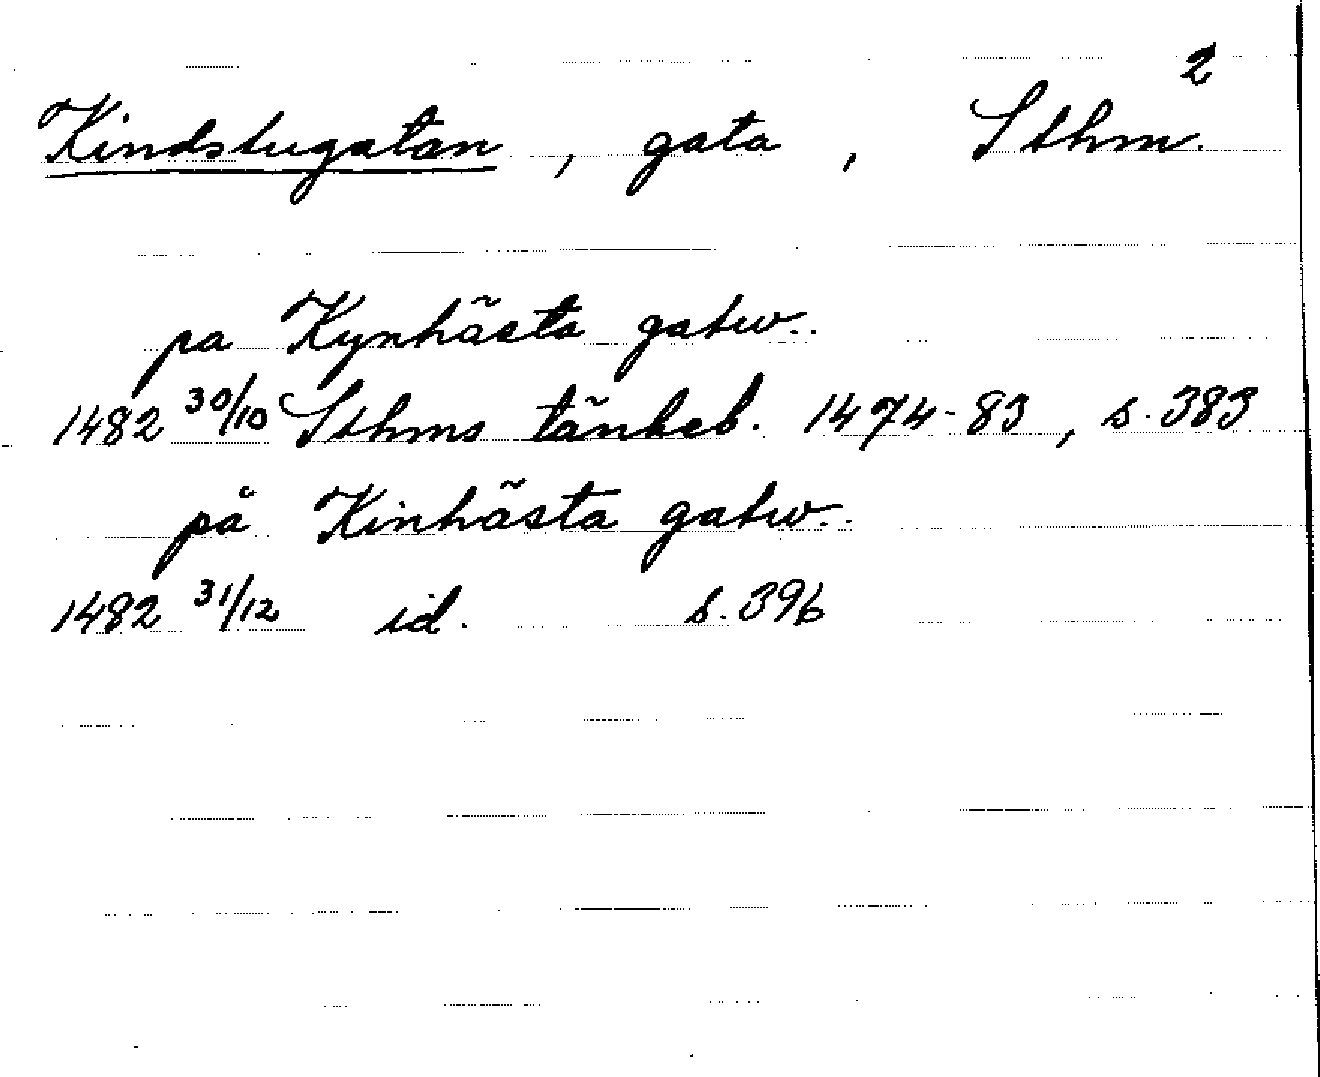 2
Kindstugatan, gata, Sthm.
pa Kynhästa gatw..
1482 30/10 Sthms tänkeb. 1474-83, s. 383
på Kinhästa gatw..
1482 31/12 id. s. 396